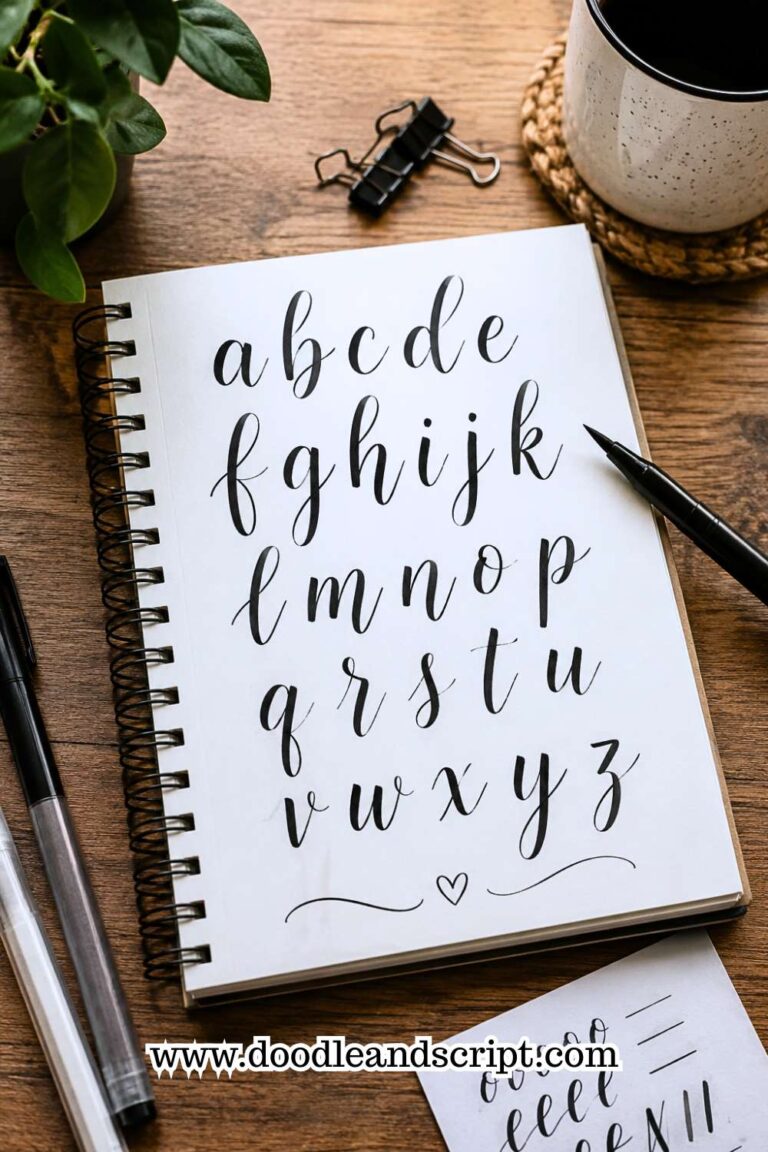 a b c d e
f g h i j k
l m n o p
q r s t u
v w x y z
www.doodleandscript.com